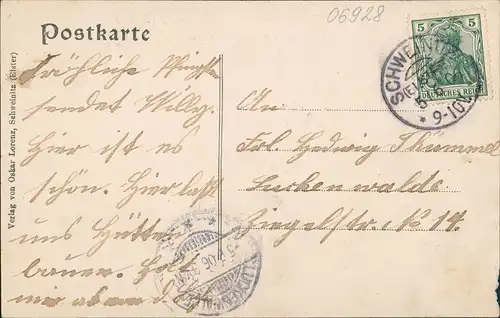 06928
Postkarte
Fröhliche Pfingsten
sendet Willy.
Hier ist es
schön. Hier lasst
uns Hütten
bauen. Holt
mir aber
An
Frl. Hedwig Thümmel
Luckenwalde
Ziegelstr. No 19.
5 5
DEUTSCHES REICH
SCHWEINITZ
9-10V
LUCKENWALDE
06
Verlag von Oskar Lorenz, Schweinitz (Elster)